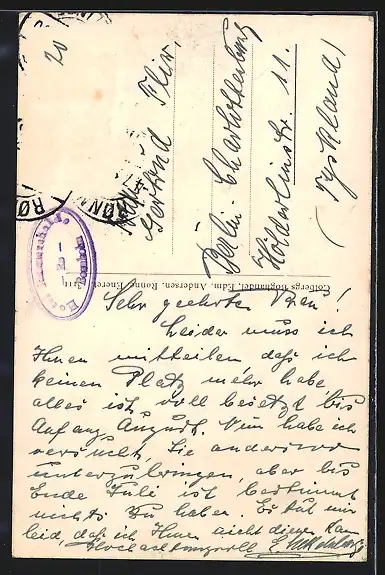 20
RØNNE
Gertrud
Berlin-Charlottenburg
Hölderlinstr. 11.
(Tyskland)
Colbergs Boghandel, Edm. Andersen, Rønne. Eneret.
Sehr geehrtes Frau!
Leider muss ich
Ihnen mitteilen daß ich
keinen Platz mehr habe
alles ist voll besetzt bis
Anfang August. Nun habe ich
versucht, Sie anderswo
unterzubringen, aber bis
Ende Juli ist bestimmt
nichts zu haben. Es tut mir
leid, daß ich Ihnen nicht dienen kan
Hochachtungsvoll